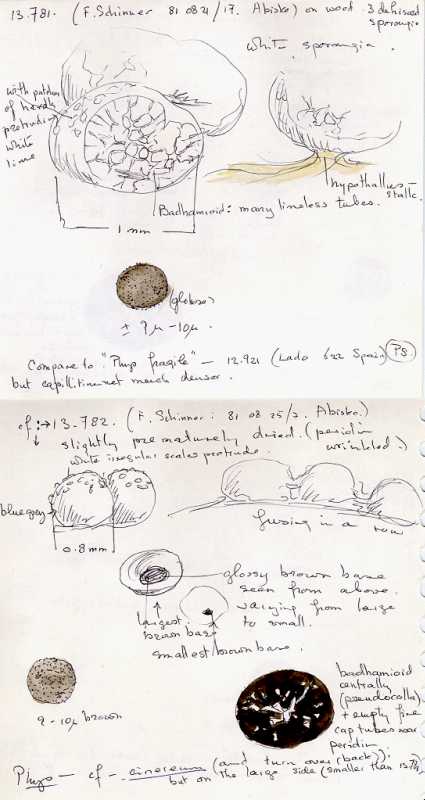 13.781. (F. Schinner 81 08 21/17. Abisko) on wood. 3 dehisced
sporangia
White sporangia.
with patches
of hard
protruding
white
lime
hypothallus-
stalk.
Badhamioid: many limeless tubes.
1 mm
(globose)
± 9µ - 10µ.
Compare to "Phys fragile" - 12.921 (Lado 622 Spain) PS.
but capillitium net much denser.
cf: → 13.782. (F. Schinner: 81 08 25/3. Abisko.)
slightly prematurely dried. (peridium
wrinkled.)
white irregular scales protrude.
bluegrey
0.8 mm
fusing in a row
glossy brown base
seen from above.
varying from large
to small.
largest
brown base
smallest brown base.
9 - 10µ brown
badhamioid
centrally
(pseudocolla)
+ empty fine
cap tubes near
peridium.
Phys - cf - cinereum (and turn over (back)):
but on the large side (smaller than 13.781)